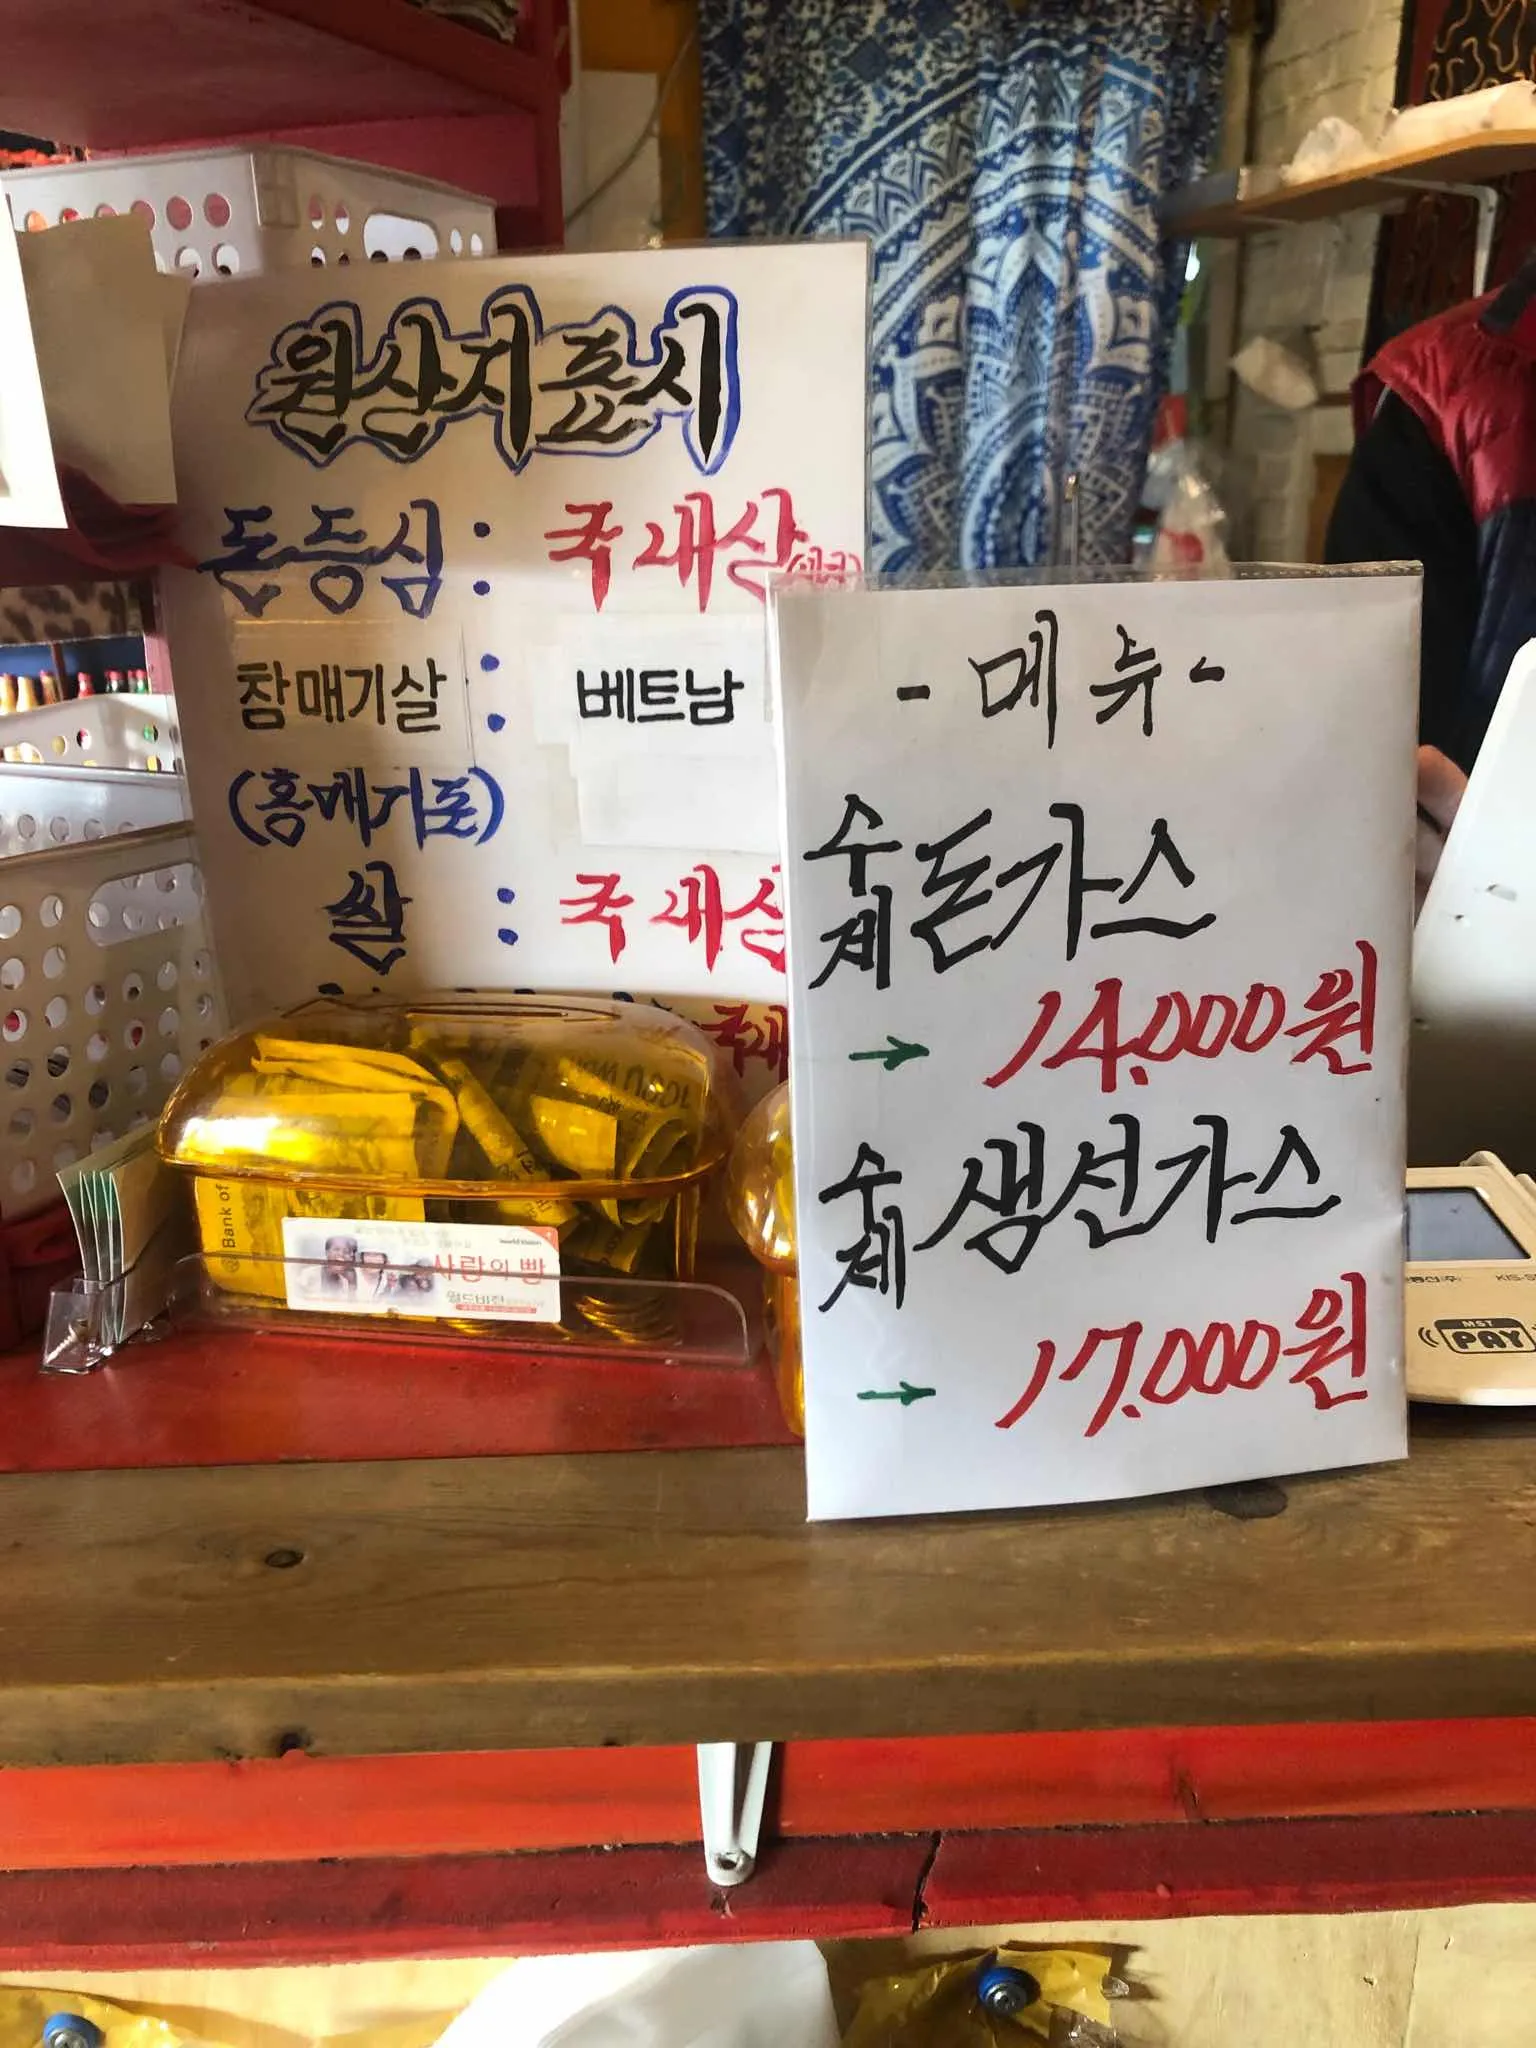 원산지표시
돈등심 : 국내산
참매기살 : 베트남
(홍메기포)
쌀 : 국내산
국내
- 메뉴 -
수제 돈가스
→ 14,000원
수제 생선가스
→ 17,000원
1000 WON
Bank of
World Vision
사랑의 빵
월드비전
KIS-S
MST
PAY